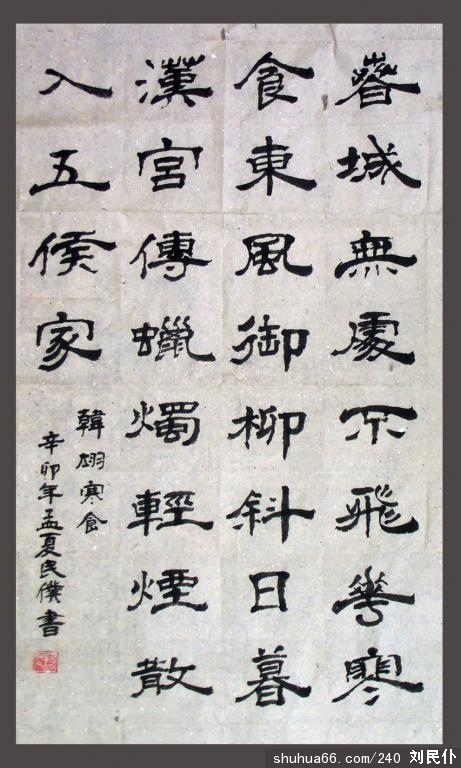 春城無處不飛花寒
食東風御柳斜日暮
漢宮傳蠟燭輕煙散
入五侯家
韓翃寒食
辛卯年孟夏民僕書
shuhua66.com/240 刘民仆